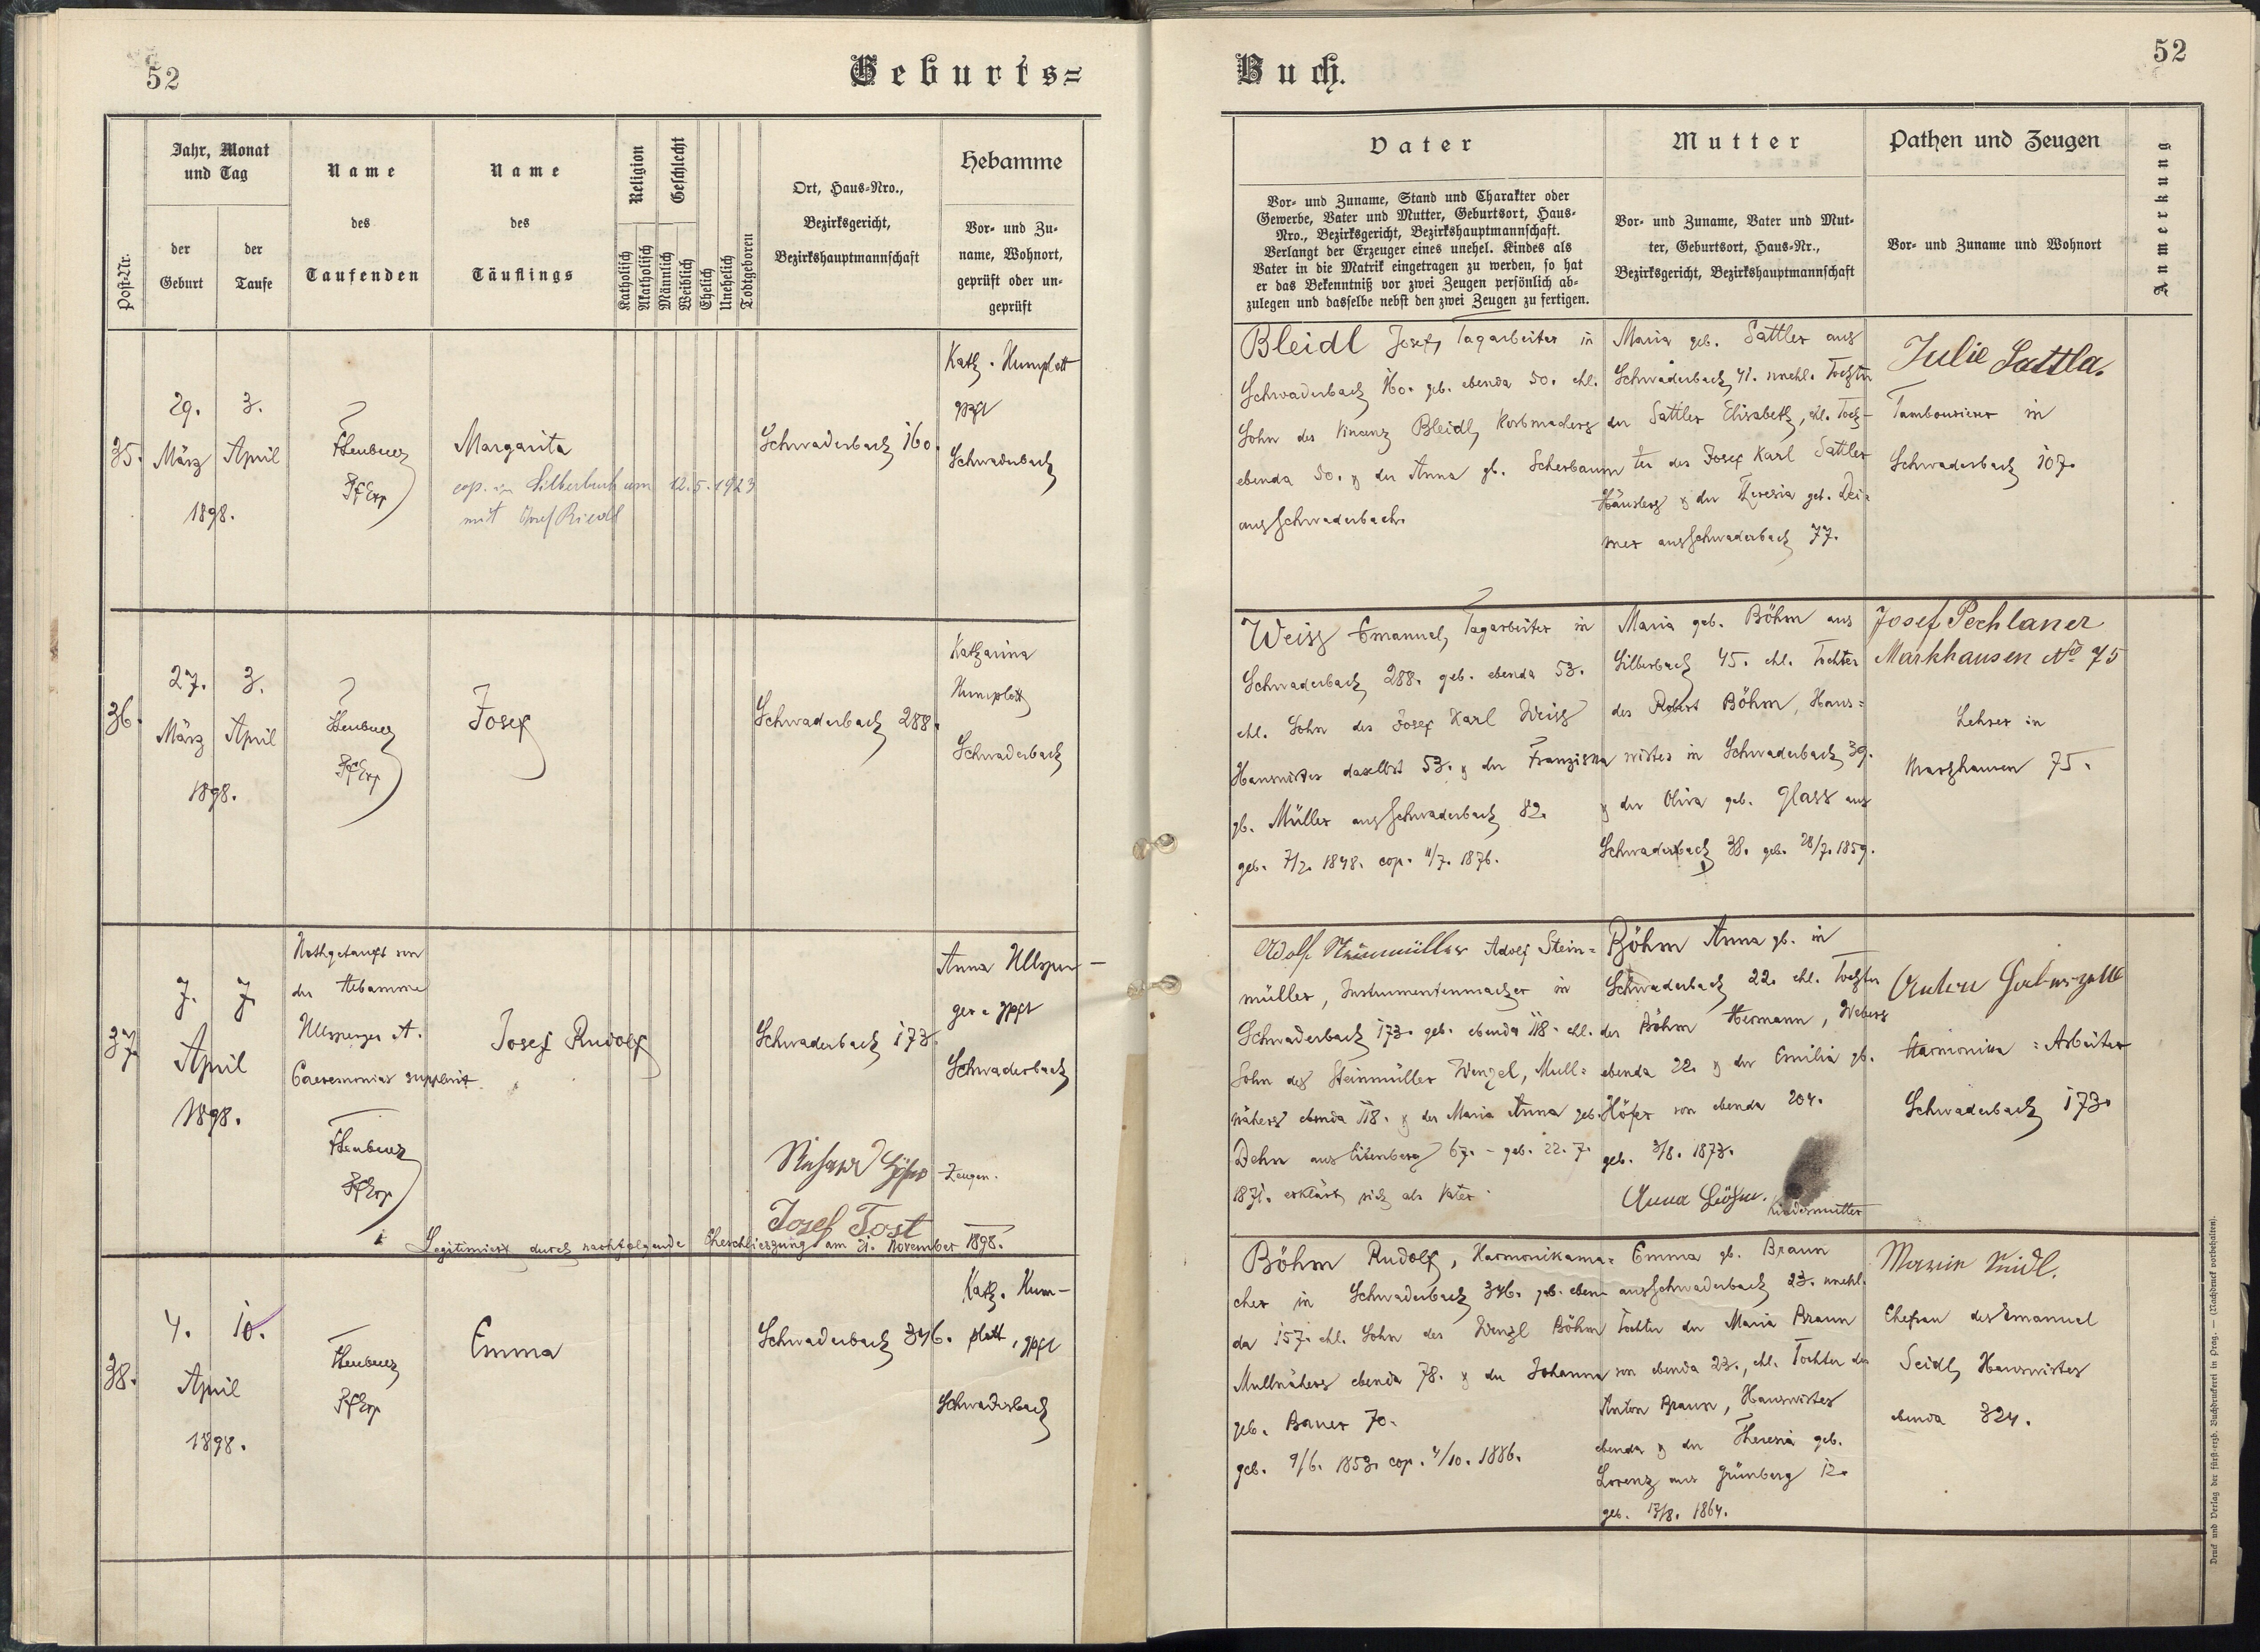 52
Geburts=
Post-Nr.
Jahr, Monat
und Tag
der
Geburt
der
Taufe
Name
des
Taufenden
Name
des
Täuflings
Religion
Katholisch
Akatholisch
Geschlecht
Männlich
Weiblich
Ehelich
Unehelich
Todtgeboren
Ort, Haus-Nro.,
Bezirksgericht,
Bezirkshauptmannschaft
Hebamme
Vor- und Zu-
name, Wohnort,
geprüft oder un-
geprüft
35.
29.
März
3.
April
1898.
Margarita
cop. in Silberbach am 12.5.1923
mit Josef Riedl
Schwaderbach 160.
Kath. Humplott
gpft
Schwaderbach
36.
27.
März
3.
April
1898.
Josef
Schwaderbach 288.
Katharina
Humplott
Schwaderbach
37.
7.
7.
April
1898.
Nothgetauft von
der Hebamme
Ullsperger A.
Caeremonias supplevit
Josef Rudolf
Schwaderbach 173.
Anna Ullsper-
ger. gpft
Schwaderbach
Zeugen.
Josef Tost
Legitimiert durch nachfolgende Eheschliessung am 21. November 1898.
38.
4.
10.
April
1898.
Emma
Schwaderbach 346.
Kath. Hum-
plott, gpft
Schwaderbach
Buch.
52
Vater
Vor- und Zuname, Stand und Charakter oder
Gewerbe, Vater und Mutter, Geburtsort, Haus-
Nro., Bezirksgericht, Bezirkshauptmannschaft.
Verlangt der Erzeuger eines unehel. Kindes als
Vater in die Matrik eingetragen zu werden, so hat
er das Bekenntniß vor zwei Zeugen persönlich ab-
zulegen und dasselbe nebst den zwei Zeugen zu fertigen.
Mutter
Vor- und Zuname, Vater und Mut-
ter, Geburtsort, Haus-Nr.,
Bezirksgericht, Bezirkshauptmannschaft
Pathen und Zeugen
Vor- und Zuname und Wohnort
Anmerkung
Bleidl Josef, Tagarbeiter in
Schwaderbach 160. geb. ebenda 50. ehl.
Sohn des Vincenz Bleidl, Korbmachers
ebenda 50. & der Anna gb. Scherbaum
aus Schwaderbach.
Maria geb. Sattler aus
Schwaderbach, 41. unehl. Tochter
der Sattler Elisabeth, ehl. Toch-
ter des Josef Karl Sattler
Häuslers & der Theresia geb. Dei=
mer aus Schwaderbach 77.
Julie Sattla.
Tambourierer in
Schwaderbach 107.
Weiss Emanuel, Tagarbeiter in
Schwaderbach 288. geb. ebenda 53.
ehl. Sohn des Josef Karl Weiss
Hauswirtes daselbst 53. & der Franziska
gb. Müller aus Schwaderbach 82.
geb. 7/2. 1848. cop. 11/7. 1876.
Maria geb. Böhm aus
Silberbach 45. ehl. Tochter
des Robert Böhm, Haus=
wirtes in Schwaderbach 39.
& der Oliva geb. Glass aus
Schwaderbach 38. geb. 28/7. 1859.
Josef Pechlaner
Markhausen No 75
Lehrer in
Markhausen 75.
Adolf Steinmüller Adolf Stein=
müller, Instrumentenmacher in
Schwaderbach 173. geb. ebenda 118. ehl.
Sohn des Steinmüller Wenzel, Mull=
nähers ebenda 118. & der Maria Anna geb.
Dehn aus Eibenberg 67. - geb. 22. 7.
1871. erklärt sich als Vater.
Böhm Anna gb. in
Schwaderbach 22. ehl. Tochter
des Böhm Hermann, Webers
ebenda 22. & der Emilia gb.
Höfer von ebenda 204.
geb. 3/8. 1873.
Anna Böhm.
Kindesmutter
Harmonika = Arbeiter
Schwaderbach 173.
Böhm Rudolf, Harmonikama=
cher in Schwaderbach 346. geb. eben-
da 157. ehl. Sohn des Wenzl Böhm
Mullnähers ebenda 78. & der Johanna
geb. Bauer 70.
geb. 9/6. 1853. cop. 4/10. 1886.
Emma gb. Braun
aus Schwaderbach 23. unehl.
Tochter der Maria Braun
von ebenda 23., ehl. Tochter des
Anton Braun, Hauswirtes
ebenda & der Theresia geb.
Lorenz aus Grünberg 12.
geb. 13/8. 1864.
Maria Seidl.
Ehefrau des Emanuel
Seidl, Hauswirtes
ebenda 324.
Druck und Verlag der fürst-erzb. Buchdruckerei in Prag. — (Nachdruck vorbehalten).